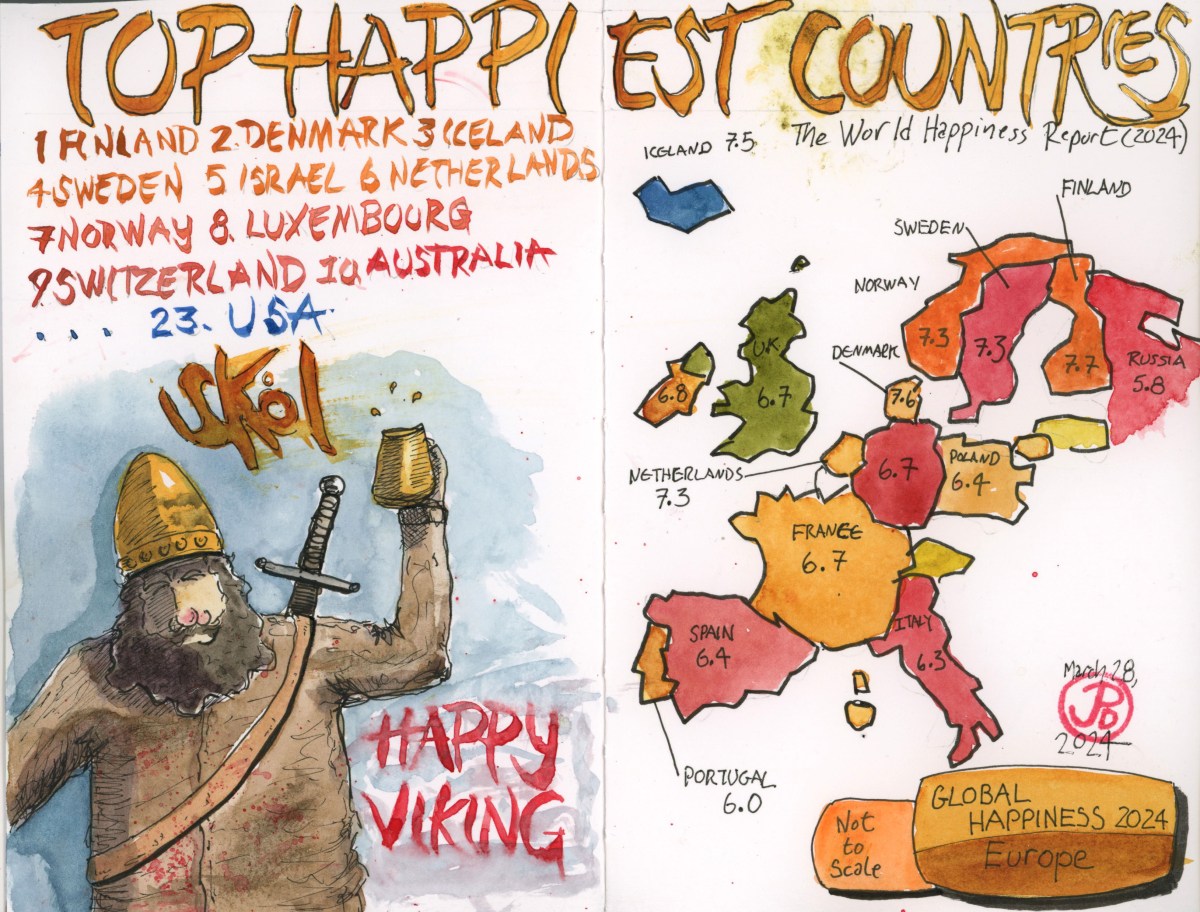 TOP HAPPIEST COUNTRIES
1 FINLAND 2. DENMARK 3 ICELAND
4 SWEDEN 5 ISRAEL 6 NETHERLANDS
7 NORWAY 8. LUXEMBOURG
9 SWITZERLAND 10. AUSTRALIA
. . . 23. USA
SKöl
HAPPY
VIKING
The World Happiness Report (2024)
ICELAND 7.5
FINLAND
SWEDEN
NORWAY
7.3
7.3
7.7
RUSSIA
5.8
DENMARK
7.6
UK
6.7
6.8
NETHERLANDS
7.3
6.7
POLAND
6.4
FRANCE
6.7
SPAIN
6.4
ITALY
6.3
PORTUGAL
6.0
March 28,
JPD
2024
Not
to
Scale
GLOBAL
HAPPINESS 2024
Europe